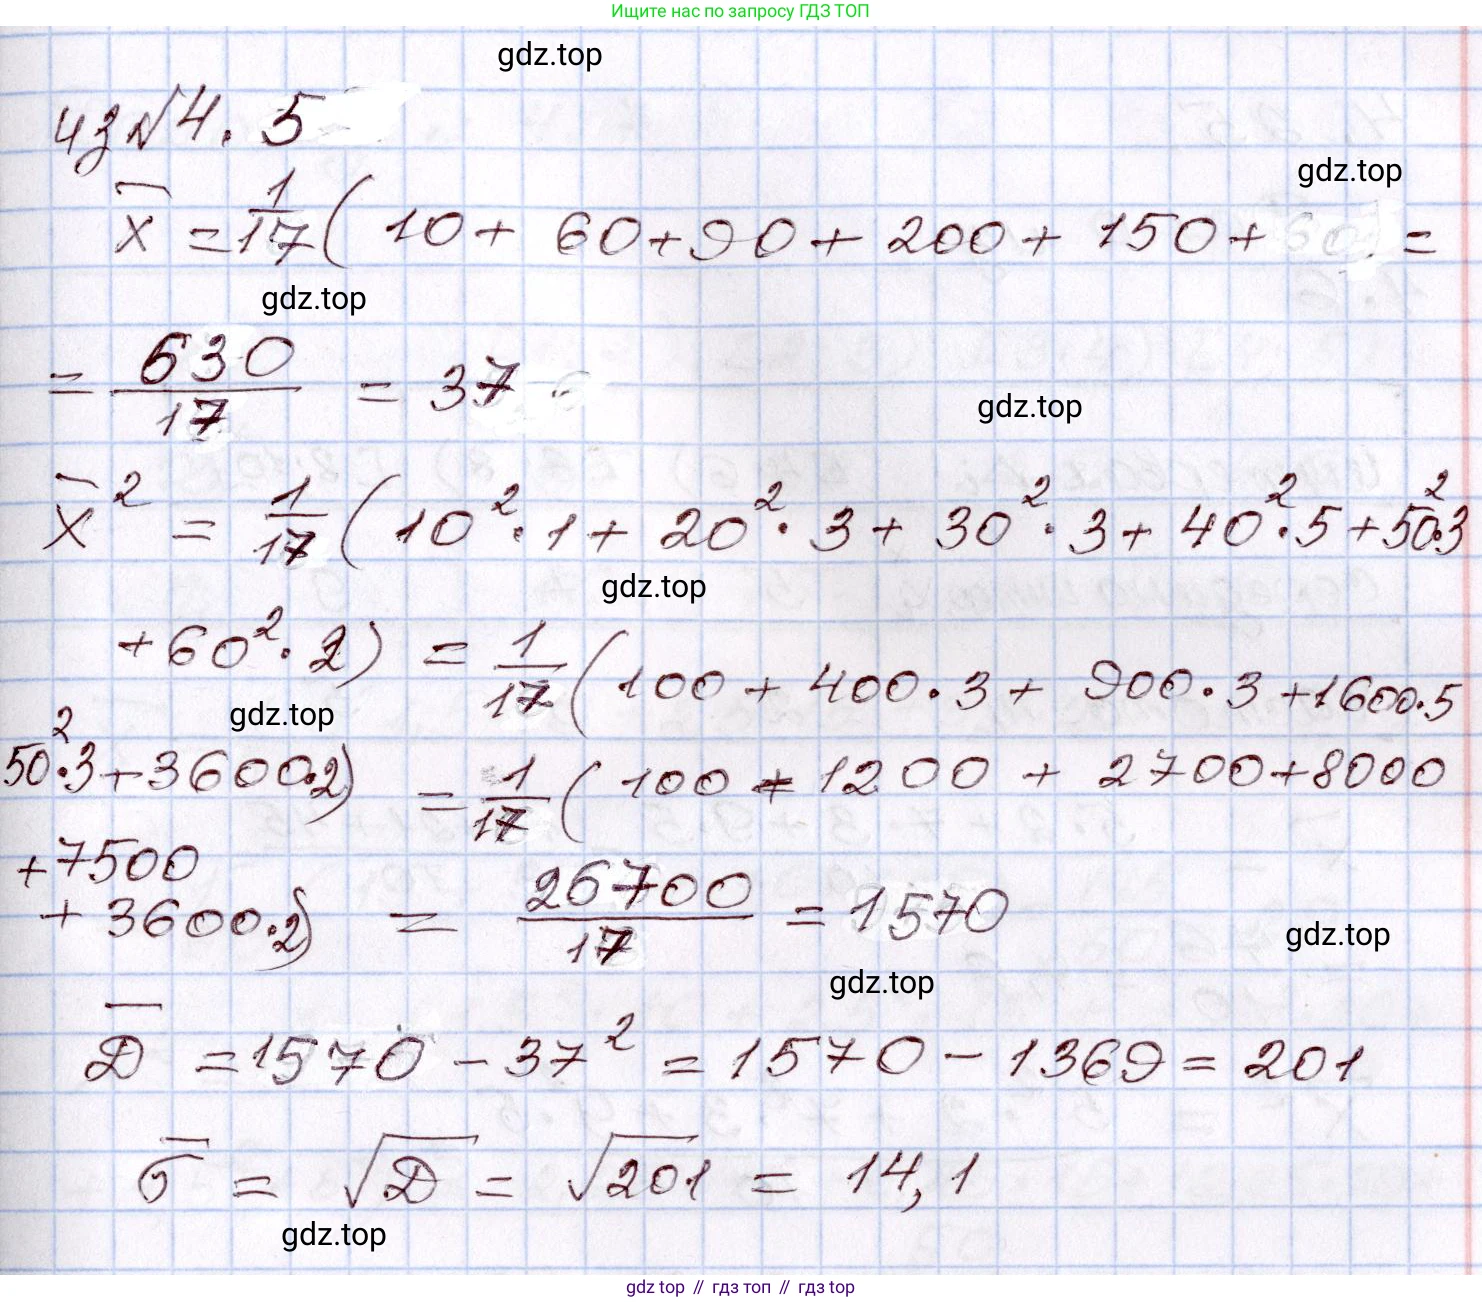 Ищите нас по запросу ГДЗ ТОП
gdz.top
ИЗ№4.5
gdz.top
x̄ = 1/17 ( 10 + 60 + 90 + 200 + 150 + 60) =
gdz.top
= 630/17 = 37
gdz.top
x̄² = 1/17 ( 10²·1 + 20²·3 + 30²·3 + 40²·5 + 50²·3
gdz.top
+ 60²·2) = 1/17 ( 100 + 400·3 + 900·3 + 1600·5
gdz.top
50²·3 + 3600·2) = 1/17 ( 100 + 1200 + 2700 + 8000
+ 7500
+ 3600·2) = 26700/17 = 1570
gdz.top
gdz.top
D̄ = 1570 - 37² = 1570 - 1369 = 201
σ̄ = √D = √201 = 14,1
gdz.top
gdz top // гдз топ // гдз top